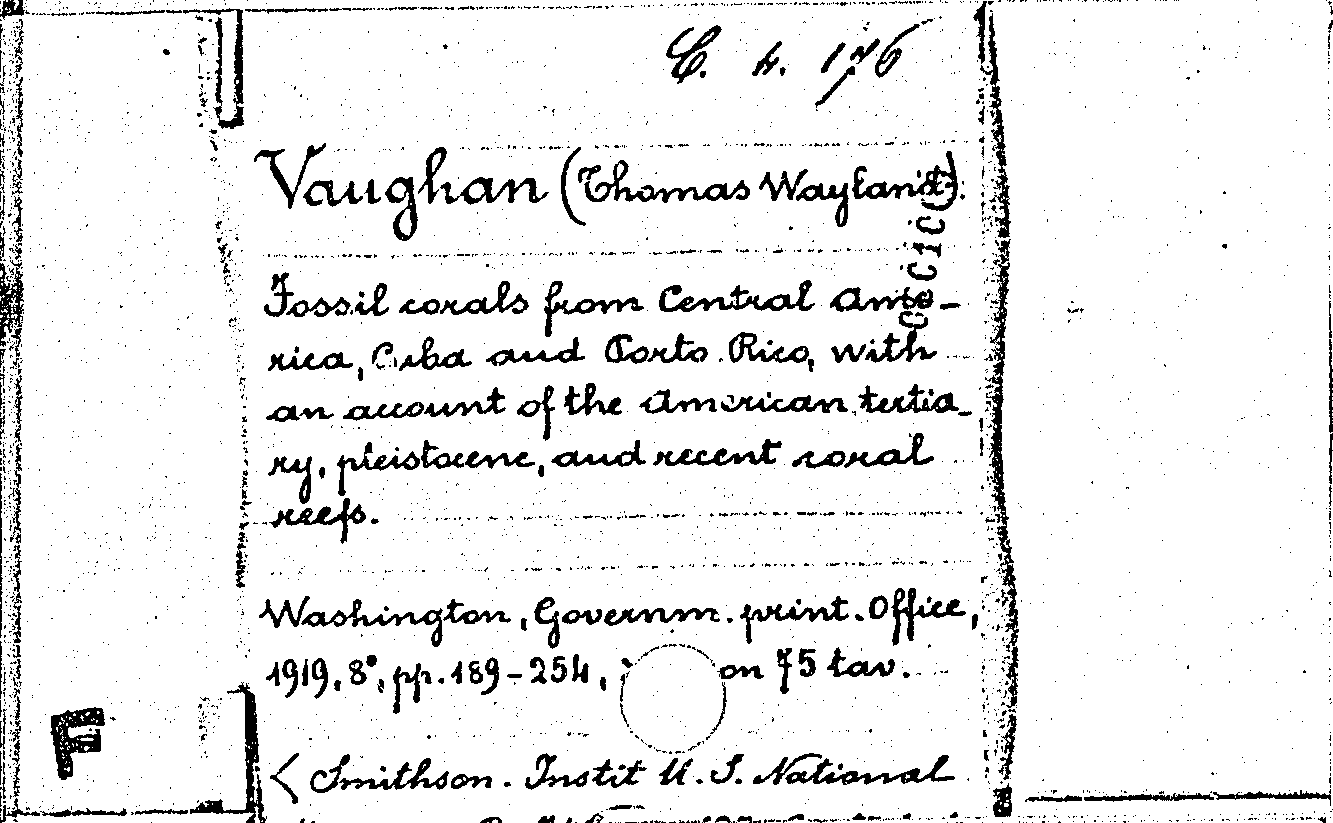 C. 4. 176
Vaughan (Thomas Wayland).
Fossil corals from Central Ame-
rica, Cuba and Porto Rico, with
an account of the American tertia-
ry, pleistocene, and recent coral
reefs.
Washington, Governm. print. Office,
1919, 8°, pp. 189-254, con 75 tav.
< Smithson. Instit U. S. National
F